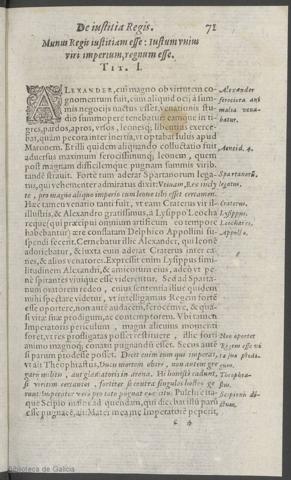 De iustitia Regis. 71
Munus Regis iustitiam esse: Iustum vnius
viri imperium, regnum esse.
TIT. I.
ALEXANDER, cui magno ob virtutem co-
gnomentum fuit, cum aliquid ocij à sum-
mis negocijs nactus esset, venationis stu-
dio summopere tenebatur
gres, pardos, apros, vrsos, leones
bat, quàm pecora inter inertia, vt optabat Iulus apud
Maronem. Erilli quidem aliquando colluctatio fuit
aduersus maximum ferocissimum leonem, quem
post magnam difficilemque pugnam summis virib.
tandē strauit. Fortè tum aderat Spartanorum lega-
tus, qui vehementer admiratus dixit:
te, pro magno aliquo imperio cum leone tibi esset certamen.
Hæc tam ei venatio tanti fuit, vt eam Craterus vir il-
lustris, & Alexandro gratissimus, à Lysippo Leochá
reque (qui præcipui omnium artificum eo tempore
habebantur) ære constatam Delphico Apollini su-
spendi fecerit. Cernebatur ille Alexander, qui leonē
adoriebatur, & iuxta eum aderat Craterus inter ca-
nes, & alios venatores. Expressit enim Lysippus simi-
litudinem Alexandri, & amicorum eius, adeò vt pe-
nè spirantes viuique esse viderentur. Sed ad Sparta-
num oratorem redeo, cuius sententia illuc quidem
mihi spectare videtur, vt intelligamus Regem fortē
esse oportere, non aut audacem, ferocemue, & qua-
si vitæ suæ prodigum, ac contemptorem. Vbi tamen
Imperatoris periculum, magni alicuius momenti
foret, vt res profligatas posset restituere, ille forti
animo magnoq; conari pugnando esset. Secus aut
si parum prodesse posset. Decet enim eum qui imperat,
vt ait Theophrastus, Ducis mortem obire, non autem gre-
garij militis, aut gladiatoris in arena. Hi honesti cadunt,
si virtutem certantes, fortiter si contra singulos hostes
runt: Imperator verò pro toto pugnat Pulchrè ita-
que Scipio insitæ ad quendam, qui dicebat illū parū
esse pugnacē, ait: Mater mea me Imperatorē peperit,
Alexander
ferociora ani
malia vena-
batur.
Aeneid. 4.
Spartanorū
legatus.
Craterus.
Lysippus.
Leochares.
Apollo.
Non oportet
Regem esse vi
tæ suæ prodi-
gum.
Theophra-
stus.
Scipionis di-
ctum.
Biblioteca de Galicia